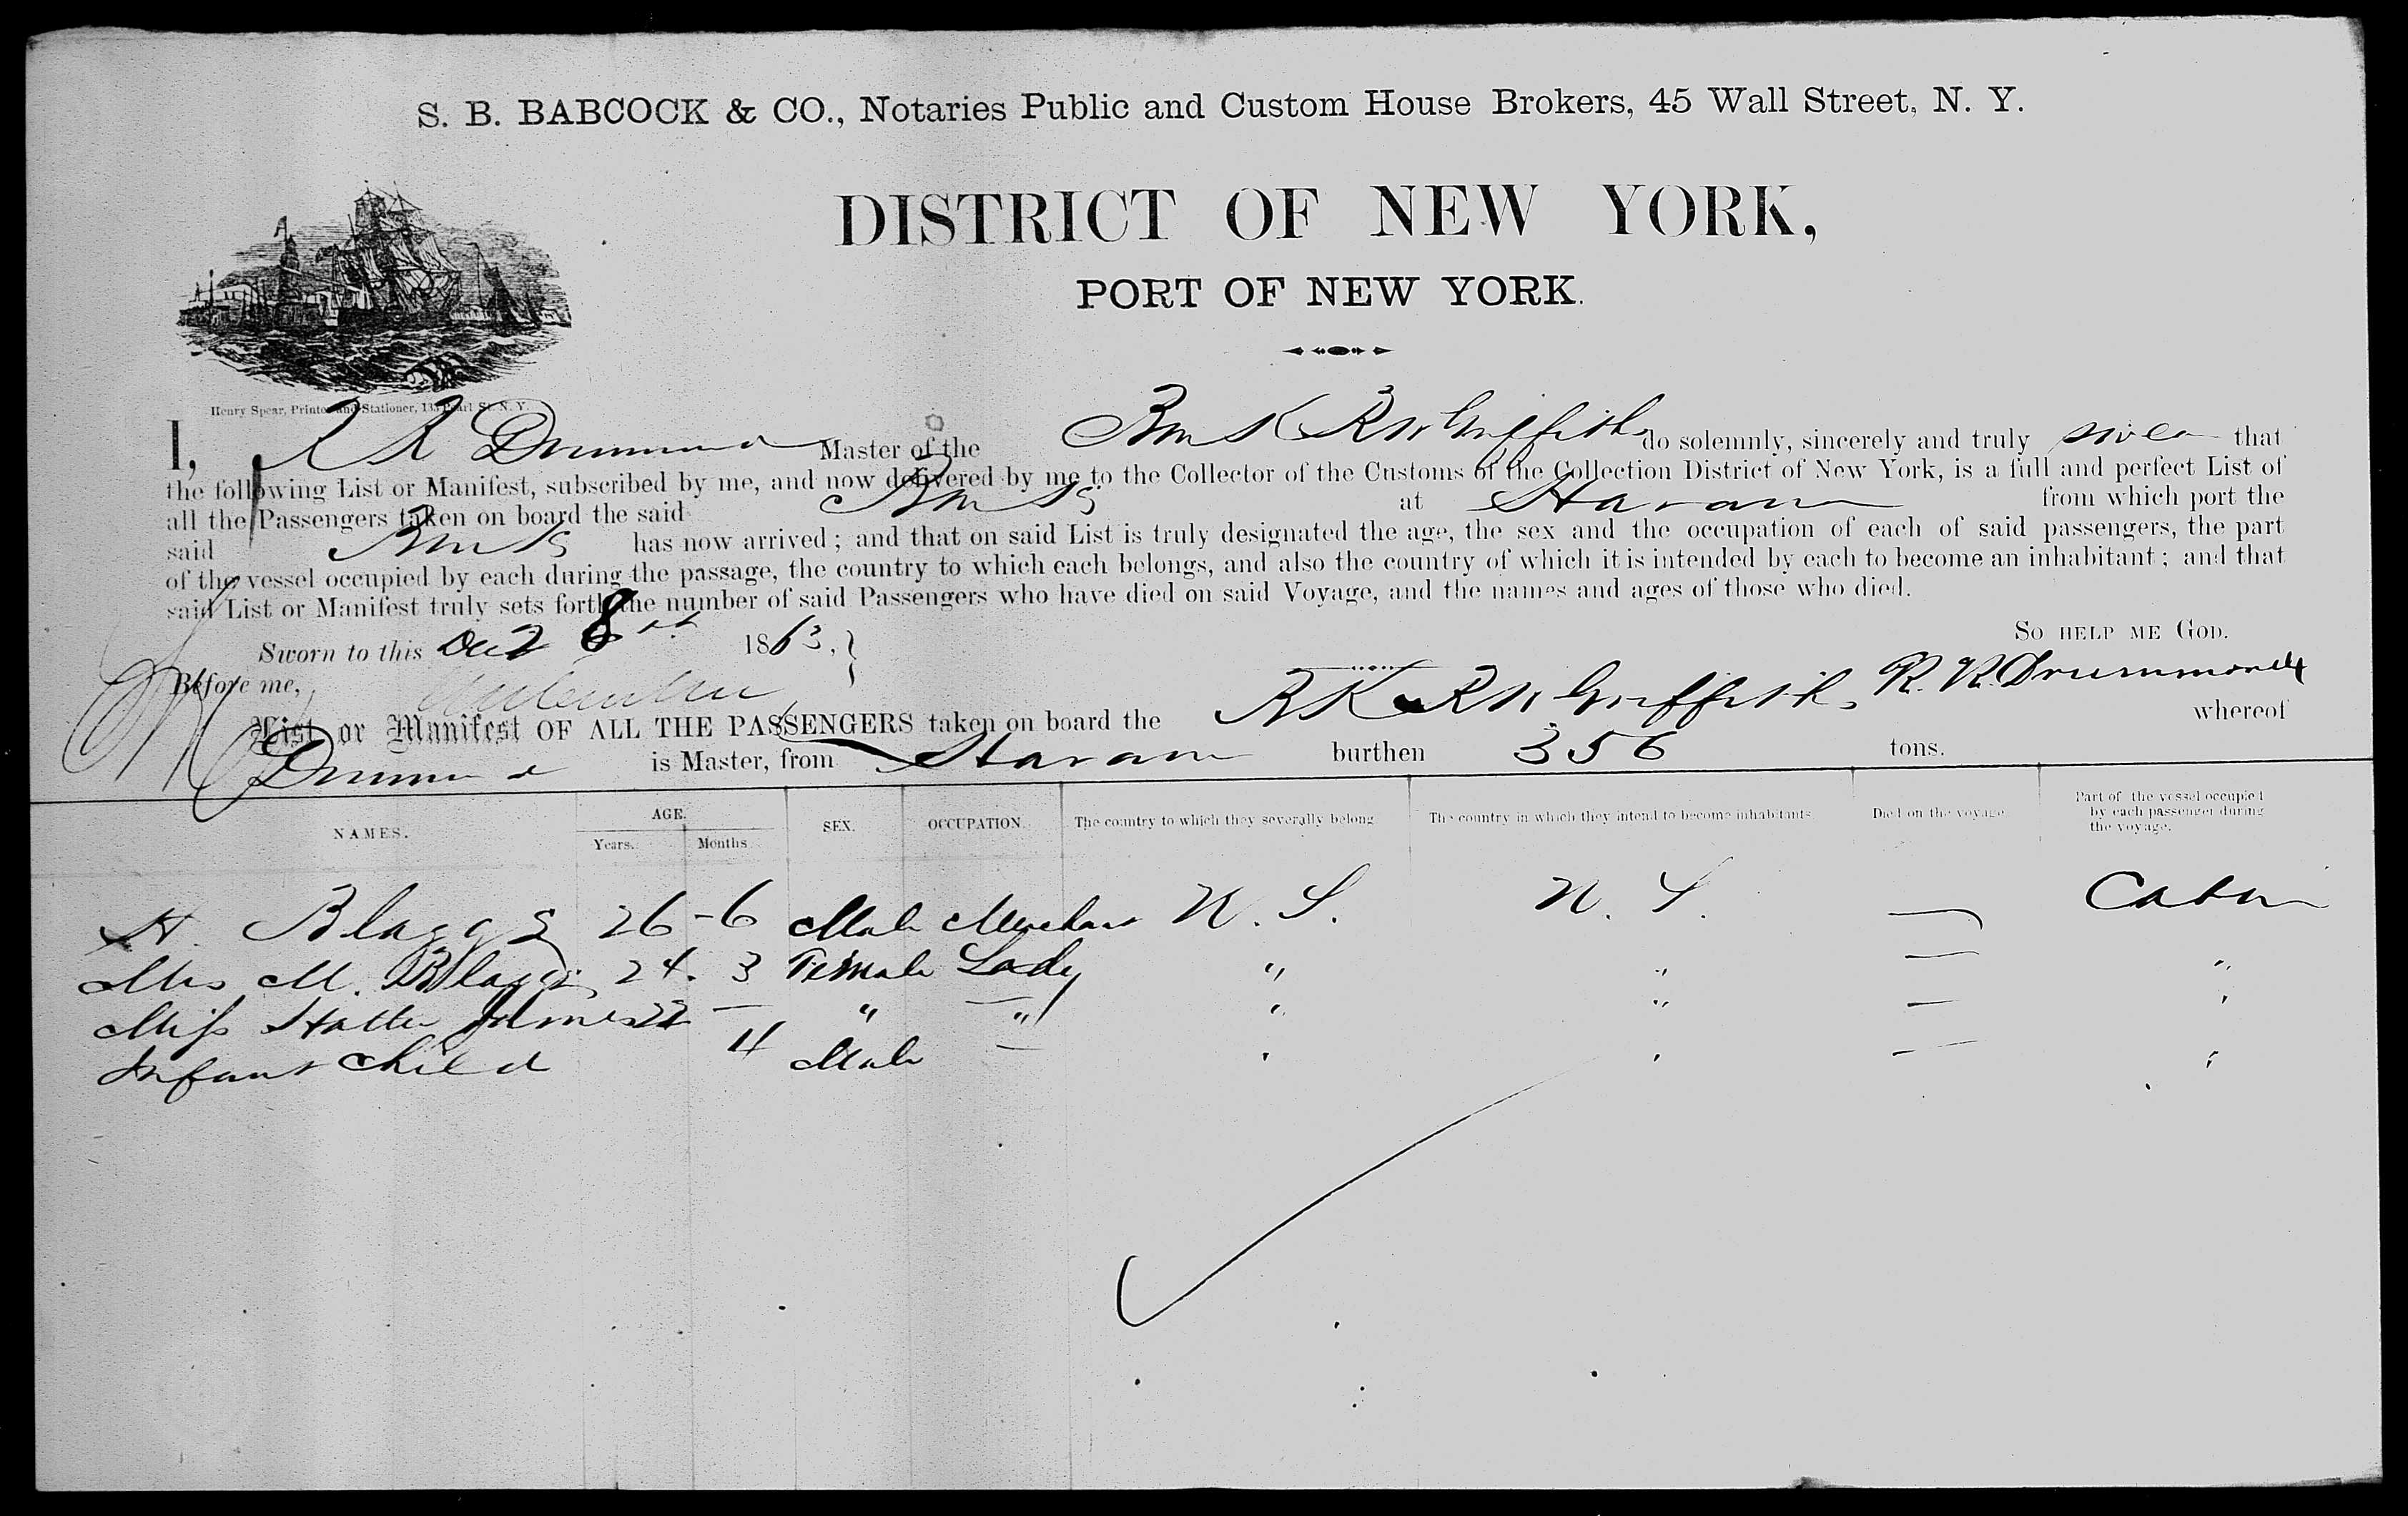 S. B. BABCOCK & CO., Notaries Public and Custom House Brokers, 45 Wall Street, N. Y.
DISTRICT OF NEW YORK,
PORT OF NEW YORK.
Henry Spear, Printer and Stationer, 133 Pearl St. N. Y.
I, R R Drummond Master of the Bark R W Griffith do solemnly, sincerely and truly swear that
the following List or Manifest, subscribed by me, and now delivered by me to the Collector of the Customs of the Collection District of New York, is a full and perfect List of
all the Passengers taken on board the said Bark at Havana from which port the
said Bark has now arrived; and that on said List is truly designated the age, the sex and the occupation of each of said passengers, the part
of the vessel occupied by each during the passage, the country to which each belongs, and also the country of which it is intended by each to become an inhabitant; and that
said List or Manifest truly sets forth the number of said Passengers who have died on said Voyage, and the names and ages of those who died.
So HELP ME GOD.
Sworn to this 8 1863,
Before me,
R. R. Drummond
List or Manifest OF ALL THE PASSENGERS taken on board the BK R W Griffith whereof
Drummond is Master, from Havana burthen 356 tons.
NAMES. AGE. SEX. OCCUPATION. The country to which they severally belong The country in which they intend to become inhabitants Died on the voyage Part of the vessel occupied by each passenger during the voyage.
Years. Months
H. Blagge 26 - 6 Male Merchant N. S. N. S. — Cabin
Mrs M. Blagge 24. 3 Female Lady " " — "
Miss Hattie 22 — " " " " — "
Infant Child 11 Male — " " — "